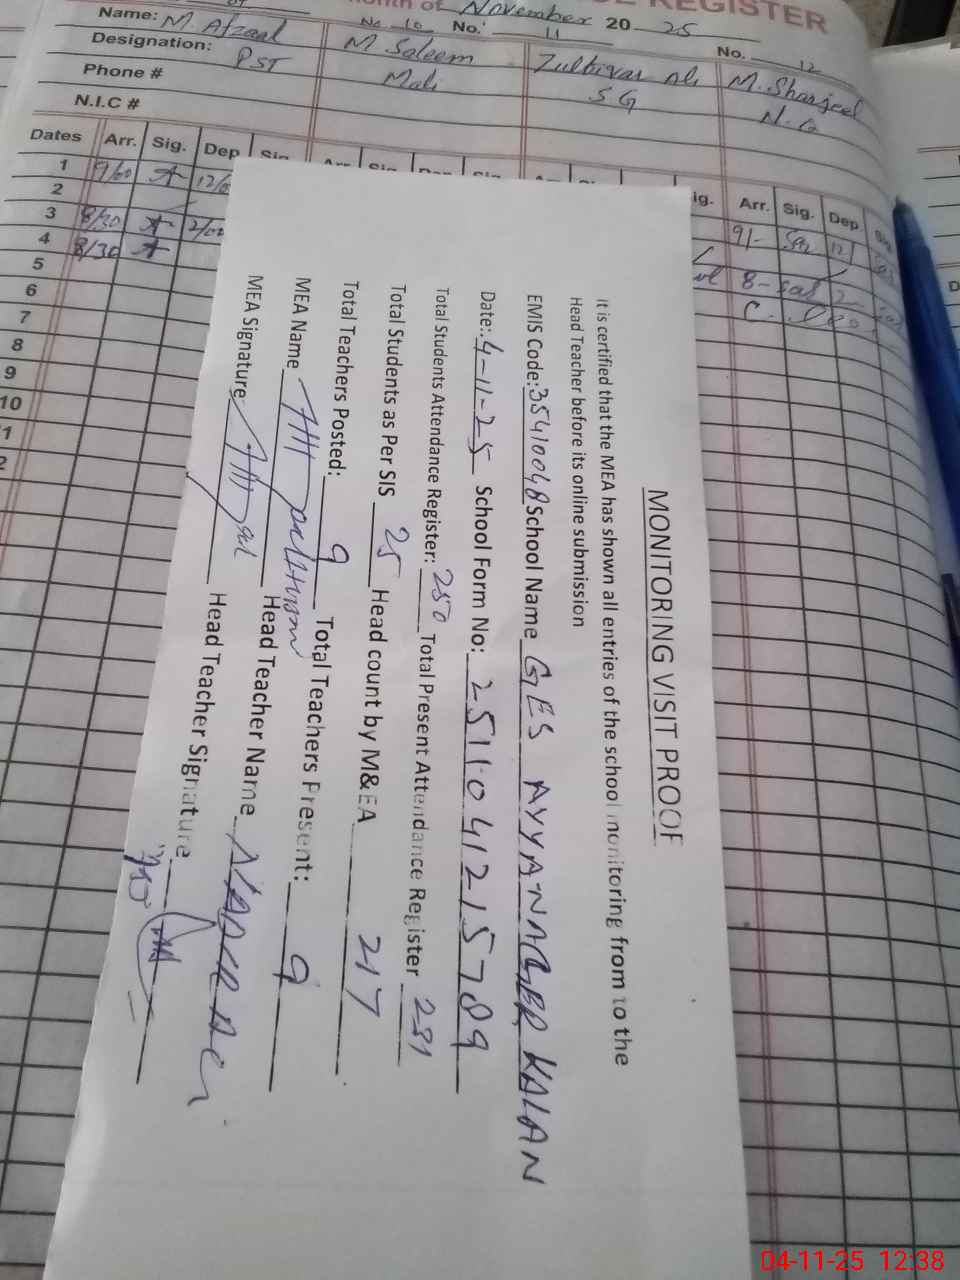 REGISTER
Month of November 2025
Name: M. Afzaal
No 10 No: 11
No. 12
M. Saleem
Zulbiqar Ali
M. Sharjeel
Designation: PST
Mali
S G
Phone #
N.I.C #
Dates Arr. Sig. Dep Sig
ig. Arr. Sig. Dep Sig
1 9/00 12/0
2
3 8/30 2/00
4 8/30
5
6
7
8
9
10
MONITORING VISIT PROOF
It is certified that the MEA has shown all entries of the school monitoring from to the
Head Teacher before its online submission
EMIS Code: 35410048 School Name GES AYYANAGER KALAN
Date: 4-11-25 School Form No: 2511041215789
Total Students Attendance Register: 250 Total Present Attendance Register 231
Total Students as Per SIS 25 Head count by M&EA 217
Total Teachers Posted: 9 Total Teachers Present: 9
MEA Name Head Teacher Name
MEA Signature Head Teacher Signature
04-11-25 12:38